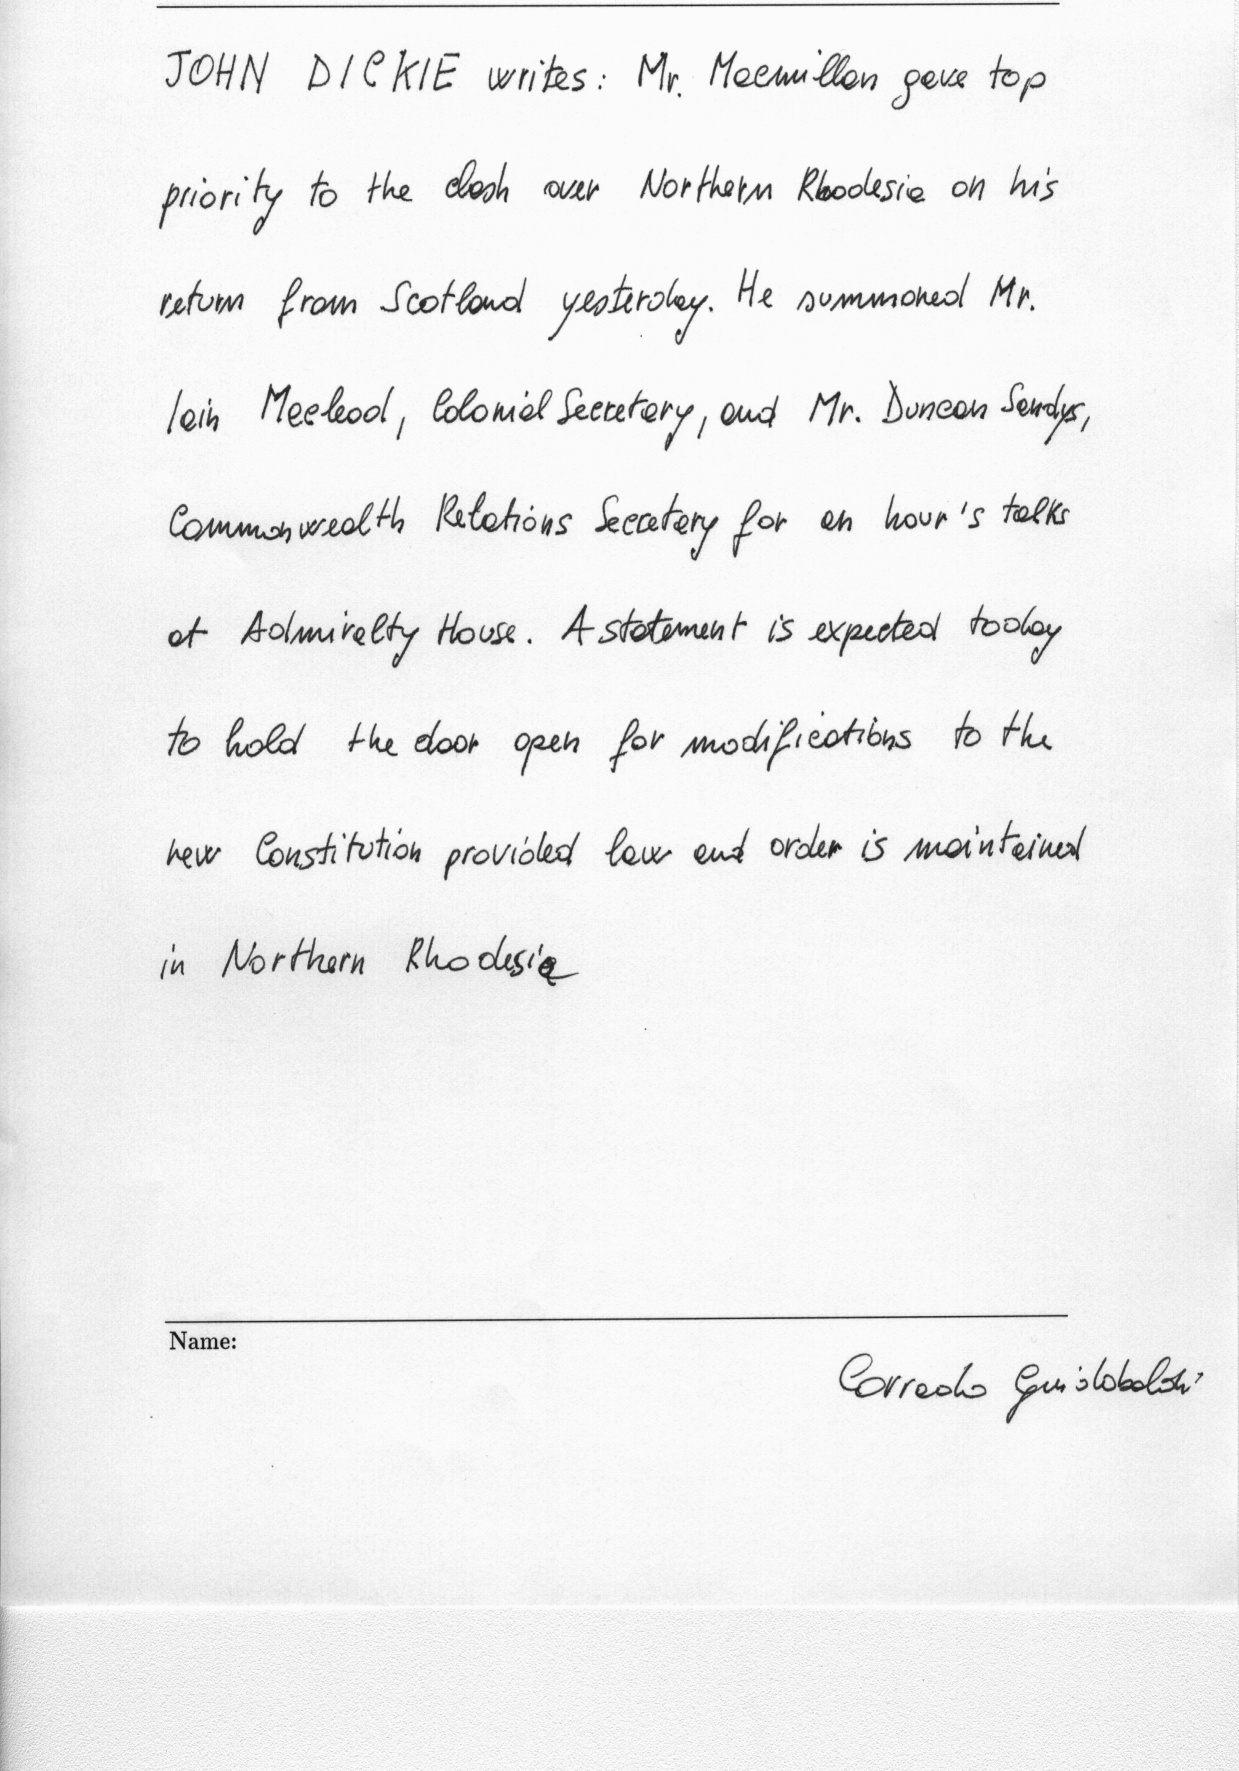 JOHN DICKIE writes: Mr. Macmillan gave top
priority to the clash over Northern Rhodesia on his
return from Scotland yesterday. He summoned Mr.
Iain Macleod, Colonial Secretary, and Mr. Duncan Sandys,
Commonwealth Relations Secretary for an hour's talks
at Admiralty House. A statement is expected today
to hold the door open for modifications to the
new Constitution provided law and order is maintained
in Northern Rhodesia
Name:
Corrado